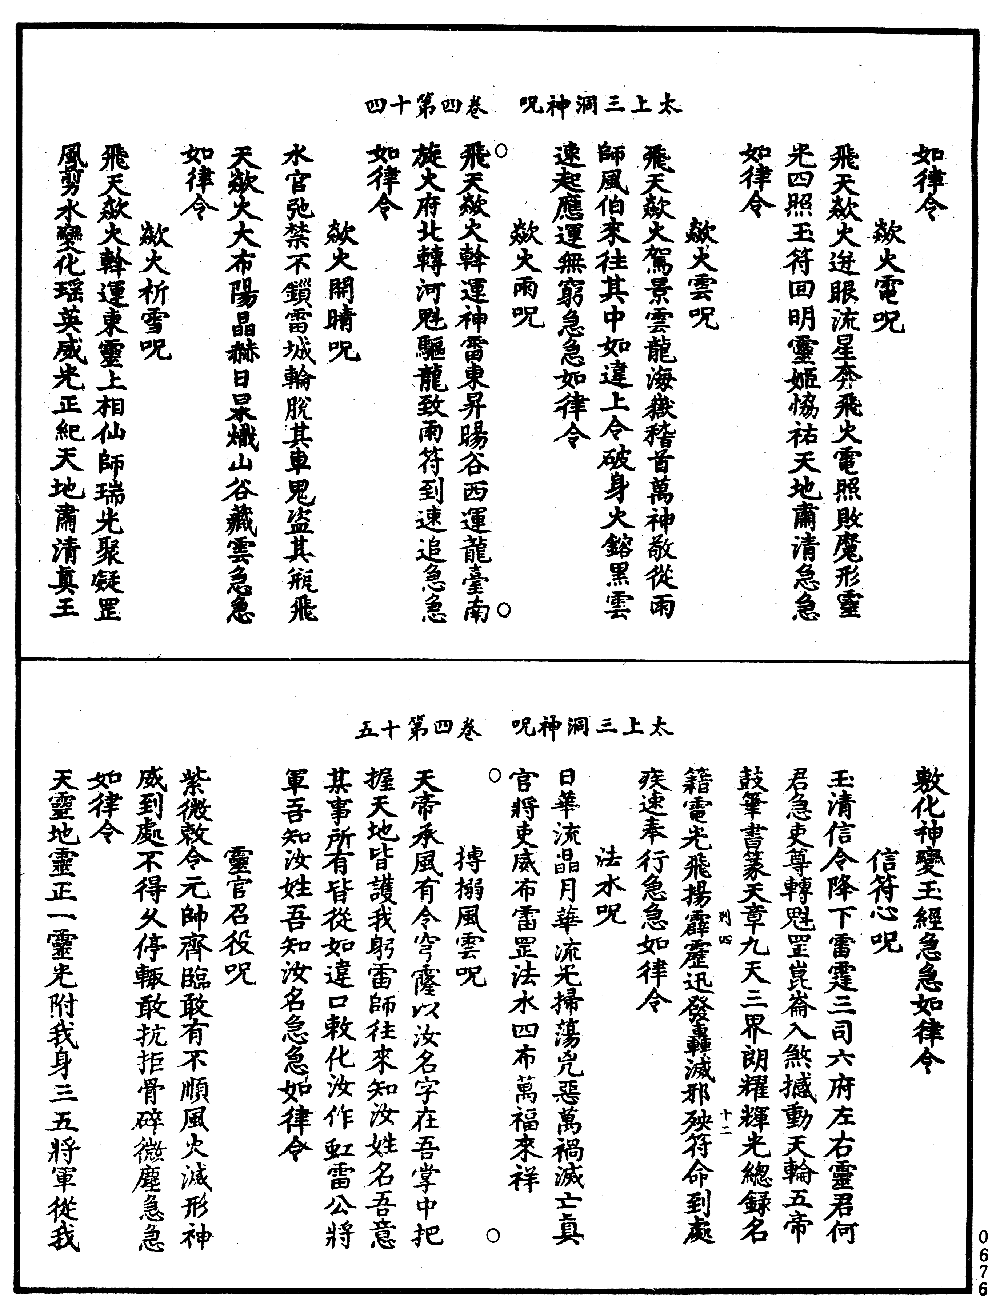 太上三洞神呪　卷四第十四
如律令
歘火電呪
飛天歘火迸眼流星奔飛火電照敗魔形靈
光四照玉符回明靈姬恊祐天地肅清急急
如律令
歘火雲呪
飛天歘火駕景雲龍海嶽稽首萬神敬從雨
師風伯來往其中如違上令破身火鎔黑雲
速起應運無窮急急如律令
歘火雨呪
飛天歘火斡運神雷東昇暘谷西運龍臺南
旋火府北轉河魁驅龍致雨符到速追急急
如律令
歘火開晴呪
水官弛禁不鎖雷城輪脫其車鬼盜其瓶飛
天歘火大布陽晶赫日杲熾山谷藏雲急急
如律令
歘火祈雪呪
飛天歘火斡運東靈上相仙師瑞光聚凝罡
風剪水變化瑶英威光正紀天地肅清真王
太上三洞神呪　卷四第十五
敷化神變玉經急急如律令
信符心呪
玉清信令降下雷霆三司六府左右靈君何
君急吏尊轉魁罡崑崙入煞撼動天輪五帝
鼓筆書篆天章九天三界朗耀輝光總錄名
列四　十二
籍電光飛揚霹靂迅發轟滅邪殃符命到處
疾速奉行急急如律令
法水呪
日華流晶月華流光掃蕩兇惡萬禍滅亡真
官將吏威布雷罡法水四布萬福來祥
搏搦風雲呪
天帝承風有令穹窿以汝名字在吾掌中把
握天地皆護我躬雷師往來知汝姓名吾意
其事所有皆從如違口敕化汝作虹雷公將
軍吾知汝姓吾知汝名急急如律令
靈官召役呪
紫微敕令元帥齊臨敢有不順風火滅形神
威到處不得久停輙敢抗拒骨碎微塵急急
如律令
天靈地靈正一靈光附我身三五將軍從我
0676